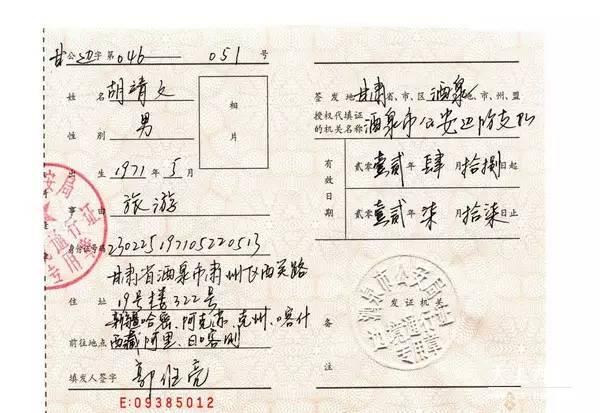 甘公边字第046 051号
姓名 胡靖文
相片
性别 男
出生 1971年5月
事由 旅游
身份证号码 230225197105220513
甘肃省酒泉市肃州区西关路
住址 19号楼322号
新疆哈密、阿克苏、克州、喀什
前往地点 西藏阿里、日喀则
填发人签字
E:09385012
签发地 甘肃省、市、区 酒泉地、市、州、盟
授权代填证的机关名称 酒泉市公安边防支队
有效日期
贰零壹贰年肆月拾捌日起
贰零壹贰年柒月拾柒日止
发证机关
备注
酒泉市公安局
边境通行证
专用章